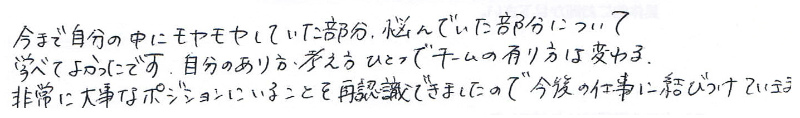 今まで自分の中にモヤモヤしていた部分、悩んでいた部分について
学べてよかったです。自分のあり方、考え方ひとつでチームの有り方は変わる。
非常に大事なポジションにいることを再認識できましたので今後の仕事に結びつけていきま